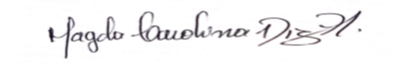 Magda Carolina Díaz H.